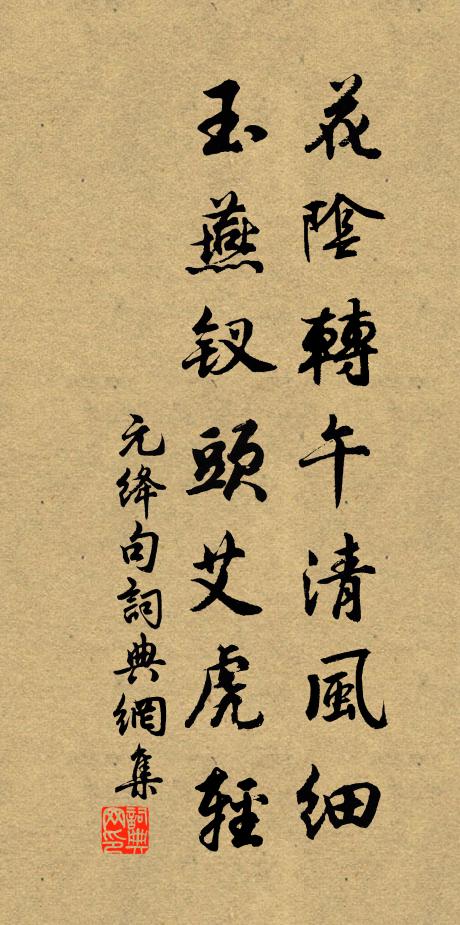 花陰轉午清風細
玉燕釵頭艾虎輕
元絳句詞典網集
詞典網印